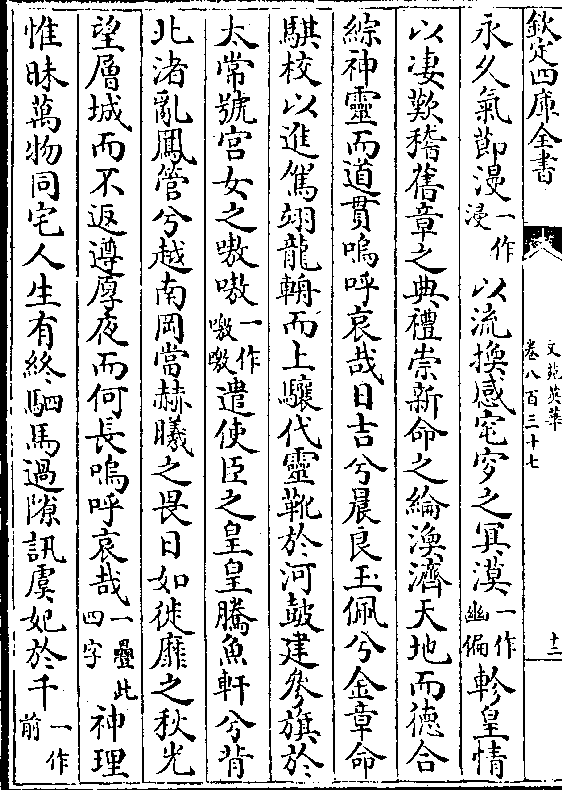 欽定四庫全書
文苑英華
卷八百三十七
十三
永久氣節漫一作浸以流換感窀穸之冥漠一作幽偏軫皇情
以凄歎稽舊章之典禮崇新命之綸渙濟天地而德合
綜神靈而道貫嗚呼哀哉日吉兮晨良玉佩兮金章命
騏校以進駕翊龍輈而上驤代靈鞉於河鼓建參旗於
太常號宮女之嗷嗷一作噭噭遣使臣之皇皇騰魚軒兮背
北渚亂鳳管兮越南岡當赫曦之畏日如徙靡之秋光
望層城而不返遵厚夜而何長嗚呼哀哉一疊此四字神理
惟昧萬物同宅人生有終駟馬過隙訊虞妃於千一作前